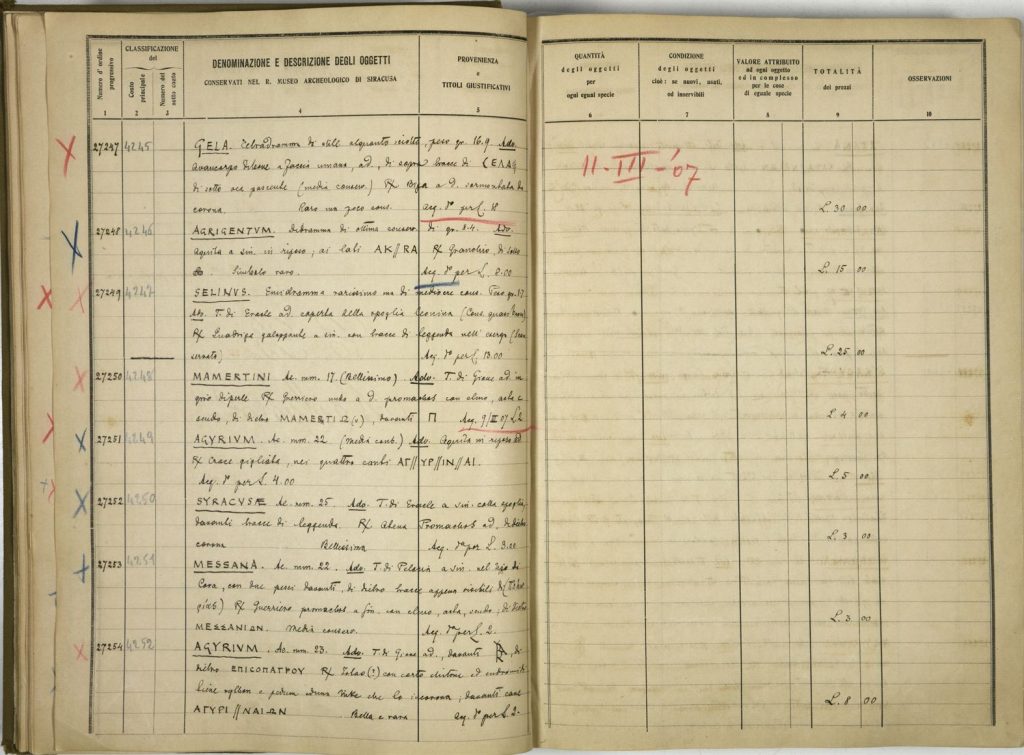 Numero d'ordine progressivo
CLASSIFICAZIONE del
Conto principale
Numero del sotto conto
DENOMINAZIONE E DESCRIZIONE DEGLI OGGETTI
CONSERVATI NEL R. MUSEO ARCHEOLOGICO DI SIRACUSA
PROVENIENZA
e
TITOLI GIUSTIFICATIVI
QUANTITÀ
degli oggetti
per
ogni egual specie
CONDIZIONE
degli oggetti
cioè: se nuovi, usati,
od inservibili
VALORE ATTRIBUITO
ad ogni oggetto
ed in complesso
per le cose
di eguale specie
TOTALITÀ
dei prezzi
OSSERVAZIONI
1 2 3 4 5 6 7 8 9 10
27247 4245 GELA. Tetradramma di stile alquanto sciolto, peso gr. 16.9. Adv.
Avancorpo di toro a faccia umana, ad., di sopra tracce di
di sotto oca pascente (media conserv.) R/ Biga a d. sormontata da
corona. Raro ma poco cons. Acq. per L. 18
11-III-'07
L. 30 00
27248 4246 AGRIGENTVM. Didramma di ottima conserv. di gr. 8.4. Adv.
Aquila a sin. in riposo, ai lati AK//RA R/ Granchio, di sotto
Simbolo raro. Acq. per L. 8.00
L. 15 00
27249 4247 SELINVS. Emidramma rarissimo ma di mediocre cons. Peso gr. 1.7
Adv. T. di Eracle ad. coperta della spoglia leonina
R/ Quadriga galoppante a sin. con tracce di leggenda nell'esergo
Acq. per L. 13.00
L. 25 00
27250 4248 MAMERTINI Ae. mm. 17 (Bellissimo) Adv. T. di Giove ad. in
giro di perle R/ Guerriero nudo a d. promachos con elmo, asta e
scudo, di dietro MAMERTI, davanti Π Acq. 9/III 07 L. 2
L. 4 00
27251 4249 AGYRIVM. Ae. mm. 22 (media cons.) Adv. Aquila in riposo ad
R/ Croce gigliata, nei quattro canti ΑΓ//ΥΡ//ΙΝ//ΑΙ.
Acq. per L. 4.00
L. 5 00
27252 4250 SYRACVSÆ Ae. mm. 25. Adv. T. di Eracle a sin. colla spoglia,
davanti tracce di leggenda. R/ Athena Promachos ad. di dietro
corona Bellissima Acq. per L. 3.00
L. 3 00
27253 4251 MESSANA. Ae. mm. 22. Adv. T. di Peloria a sin. nel tipo di
Cora, con due pesci davanti, di dietro tracce appena visibili di
R/ Guerriero promachos a sin. con elmo, asta, scudo, di dietro
ΜΕΣΣΑΝΙΩΝ. Media conserv. Acq. per L. 2.
L. 3 00
27254 4252 AGYRIVM. Ae. mm. 23. Adv. T. di Giove ad., davanti, di
dietro ΕΠΙΣΟΠΑΤΡΟΥ R/ Iolao (?) con corto chitone ed endromidi
tiene e pedum ed una Nike che lo incorona, davanti cane
ΑΓΥΡΙ//ΝΑΙΩΝ Bella e rara Acq. per L. 2.
L. 8 00